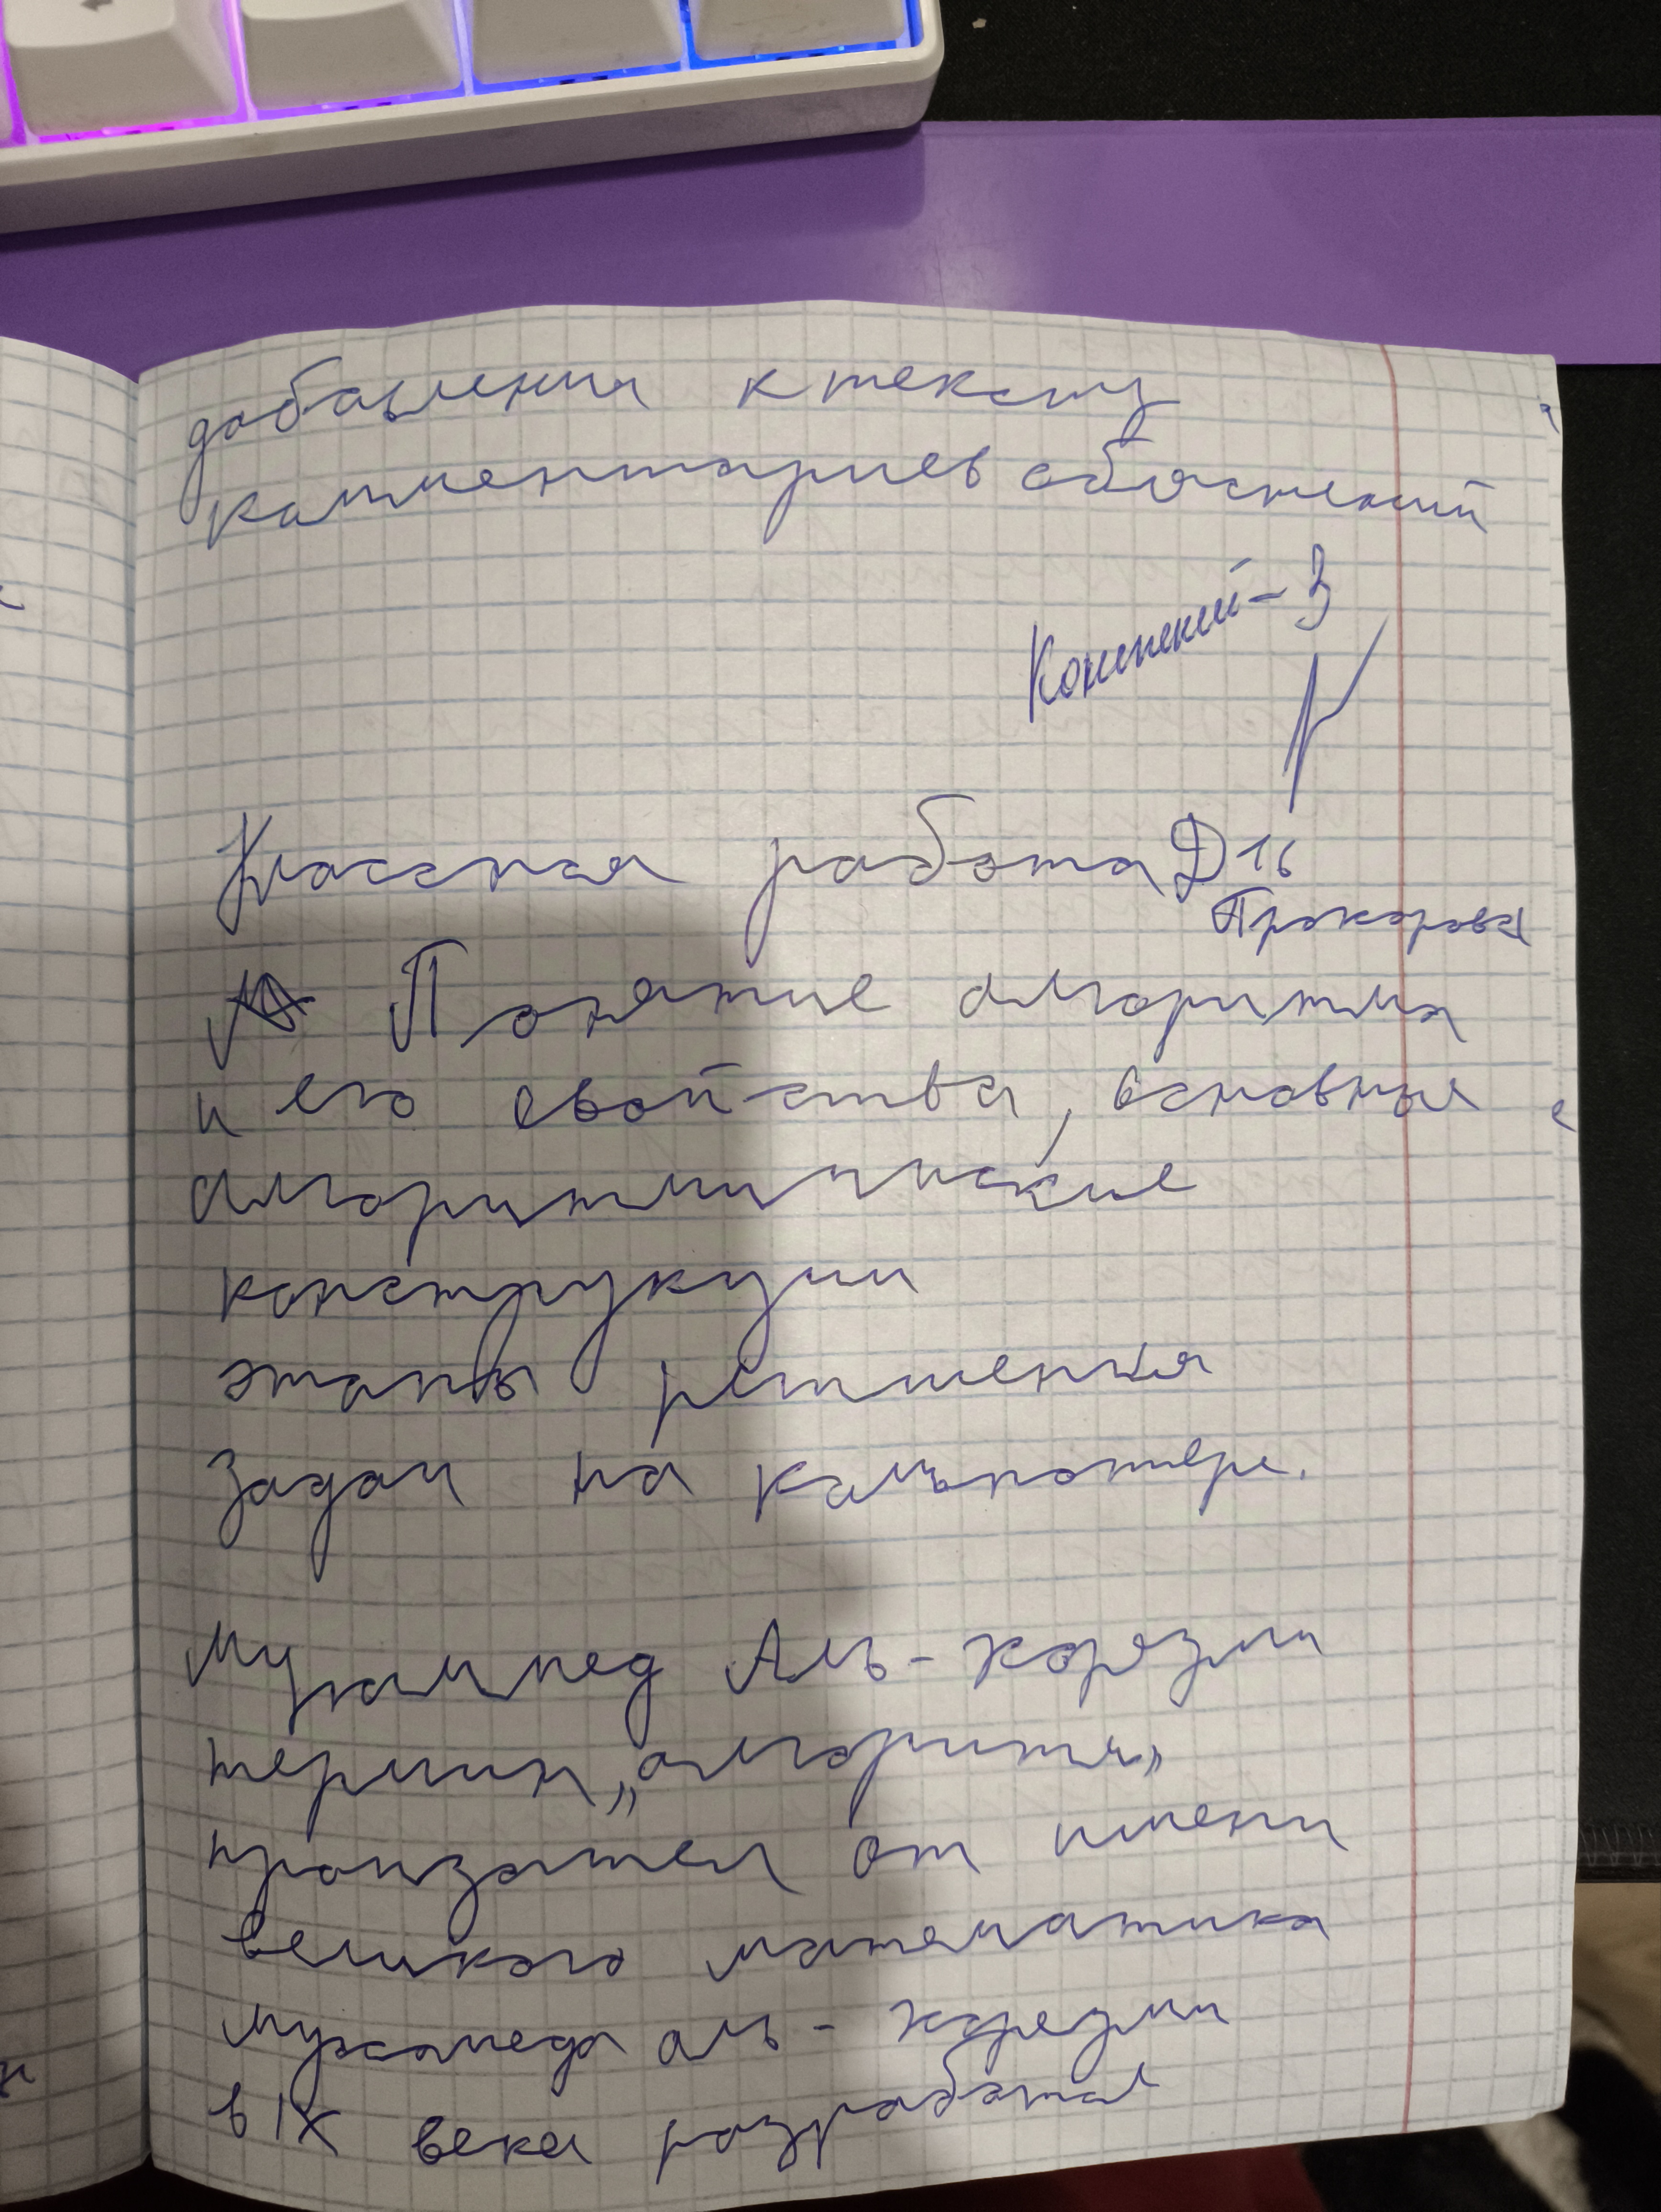 добавления к тексту
комментариев обяснений
Классная работа Д16
Прохорова
Понятие алгоритма
и его свойства, основные
алгоритмические
конструкции
этапы решения
задач на компютере.
Мухаммед Аль-хорезми
термин „алгоритм”
произошел от имени
великого математика
мухамеда аль-хорезми
в IX века разработал